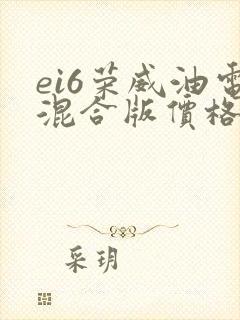 ei6荣威油電
混合版價格
采玥